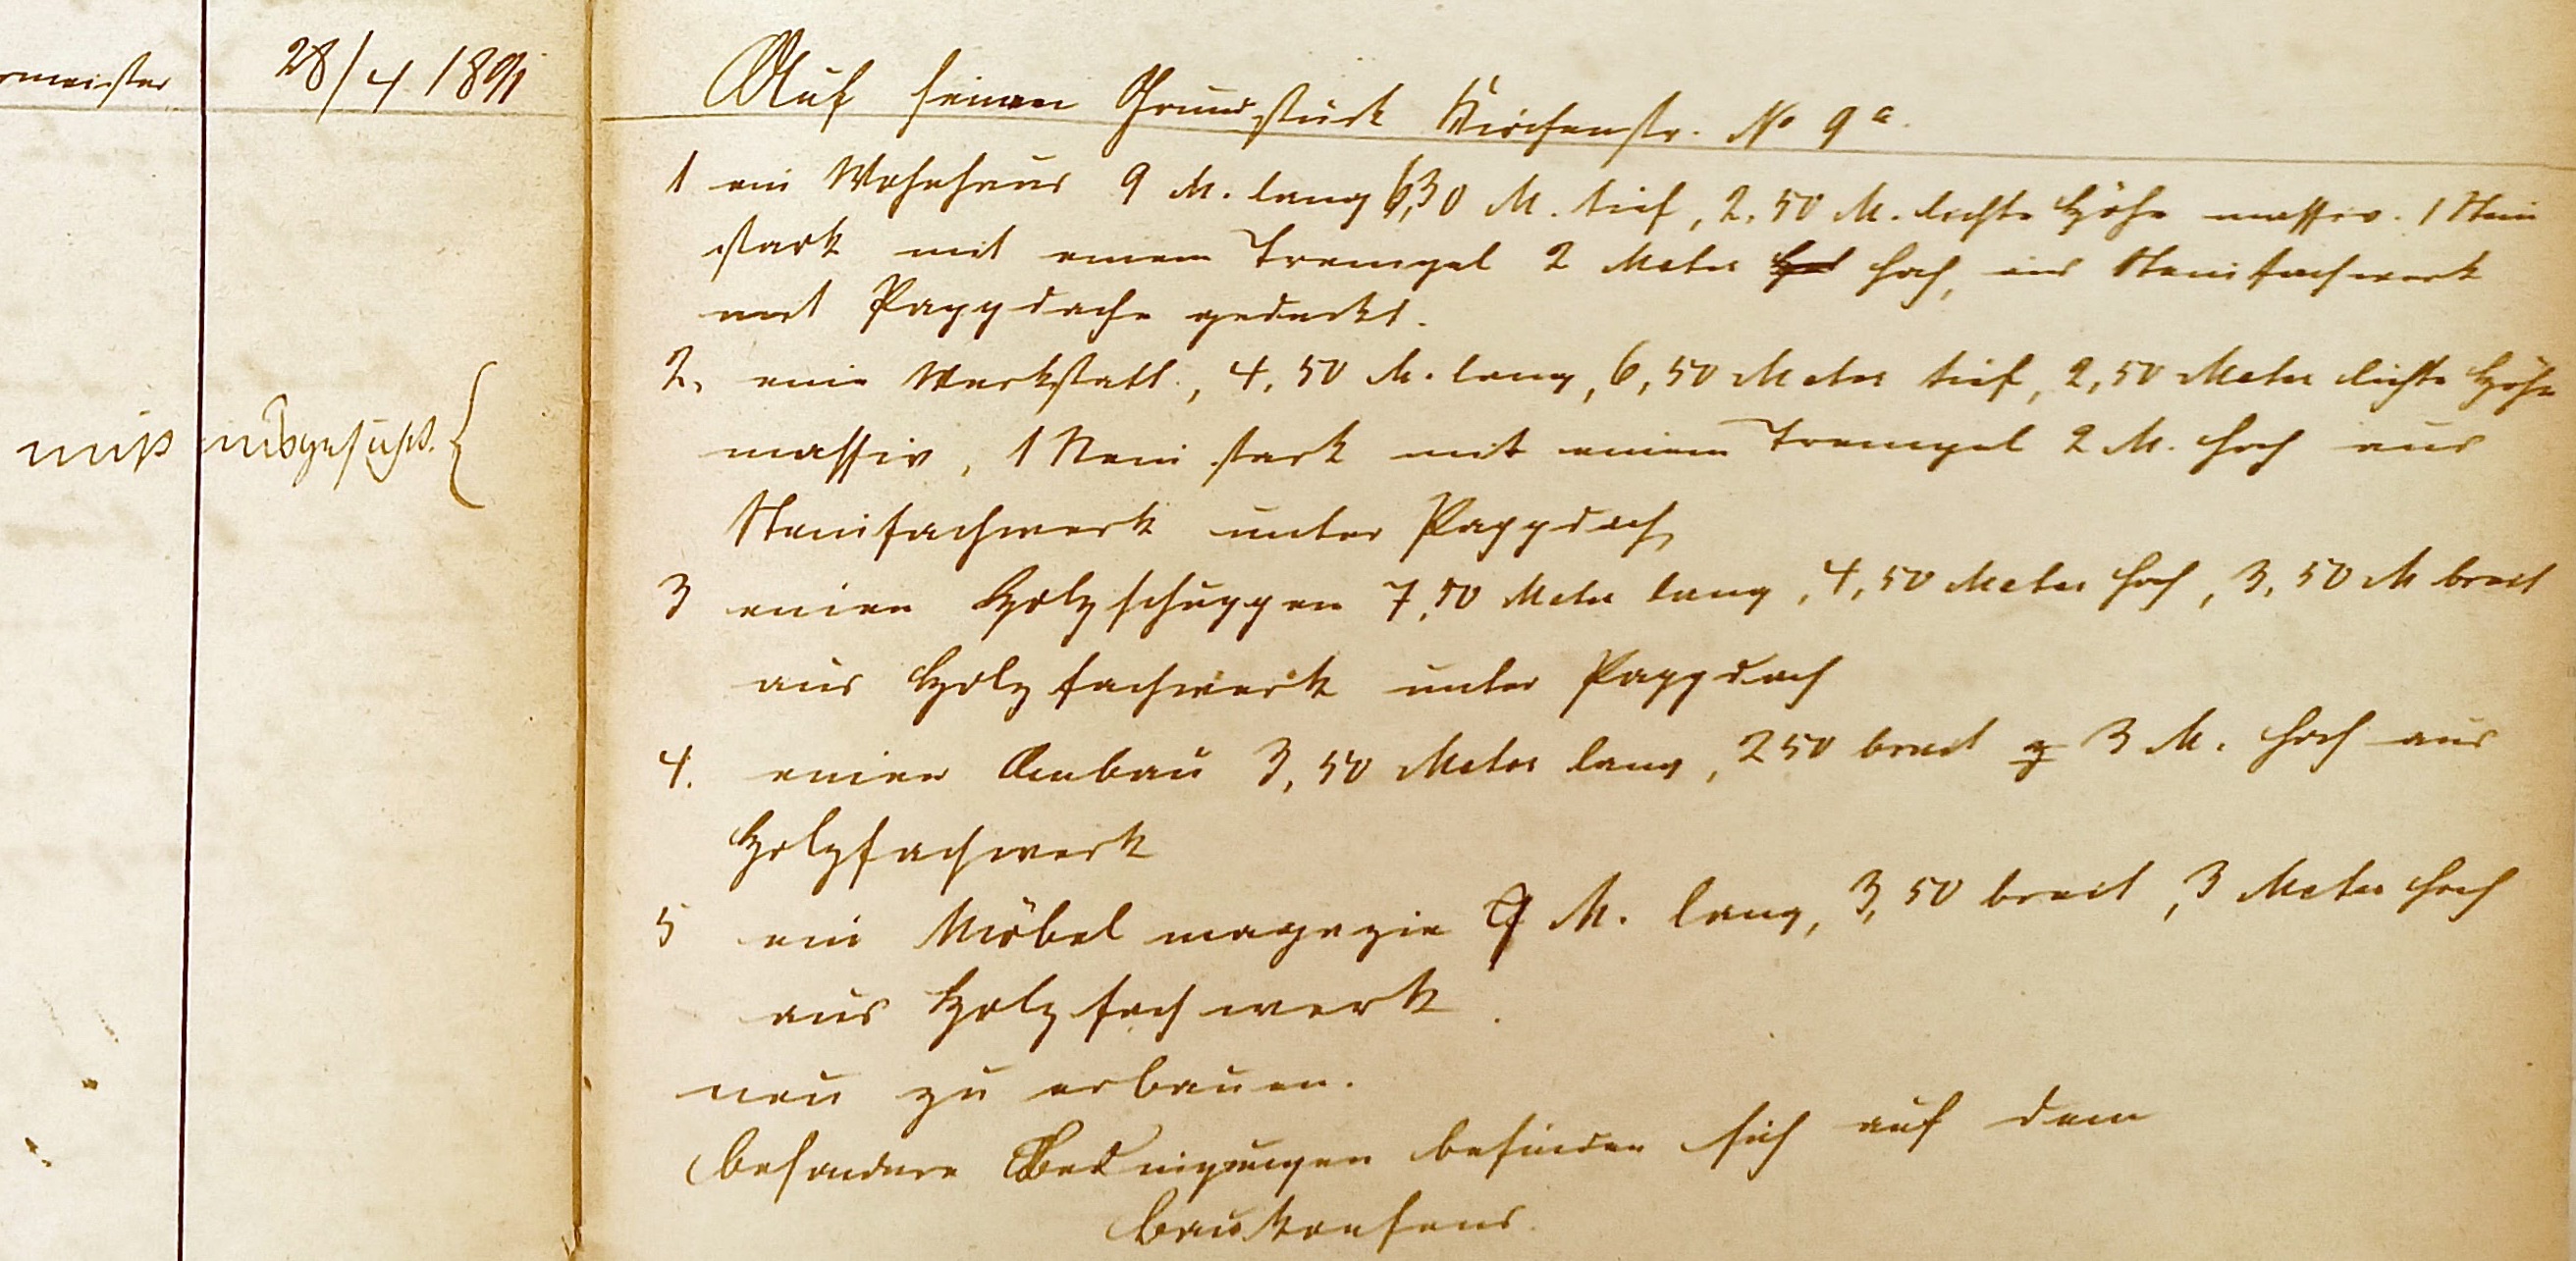 rmeister
28/4 1891
Auf seinem Grundstück Kirchenstr. No 9a.
1 ein Wohnhaus 9 M. lang 6,30 M. tief, 2,50 M. lichte Höhe massiv. 1 Stein
stark mit einem Trempel 2 Meter hoch, aus Steinfachwerk
mit Pappdache gedeckt.
2. eine Werkstatt, 4,50 M. lang, 6,50 Meter tief, 2,50 Meter lichte Höhe
massiv, 1 Stein stark mit einem Trempel 2 M. hoch aus
Steinfachwerk unter Pappdach
nicht ausgeführt. {
3 einen Holzschuppen 7,50 Meter lang, 4,50 Meter hoch, 3,50 M breit
aus Holzfachwerk unter Pappdach
4. einen Anbau 3,50 Meter lang, 250 breit 3 M. hoch aus
Holzfachwerk
5 ein Möbelmagazin 9 M. lang, 3,50 breit, 3 Meter hoch
aus Holzfachwerk.
neu zu erbauen.
besondere Bedingungen befinden sich auf dem
Baukonsens.